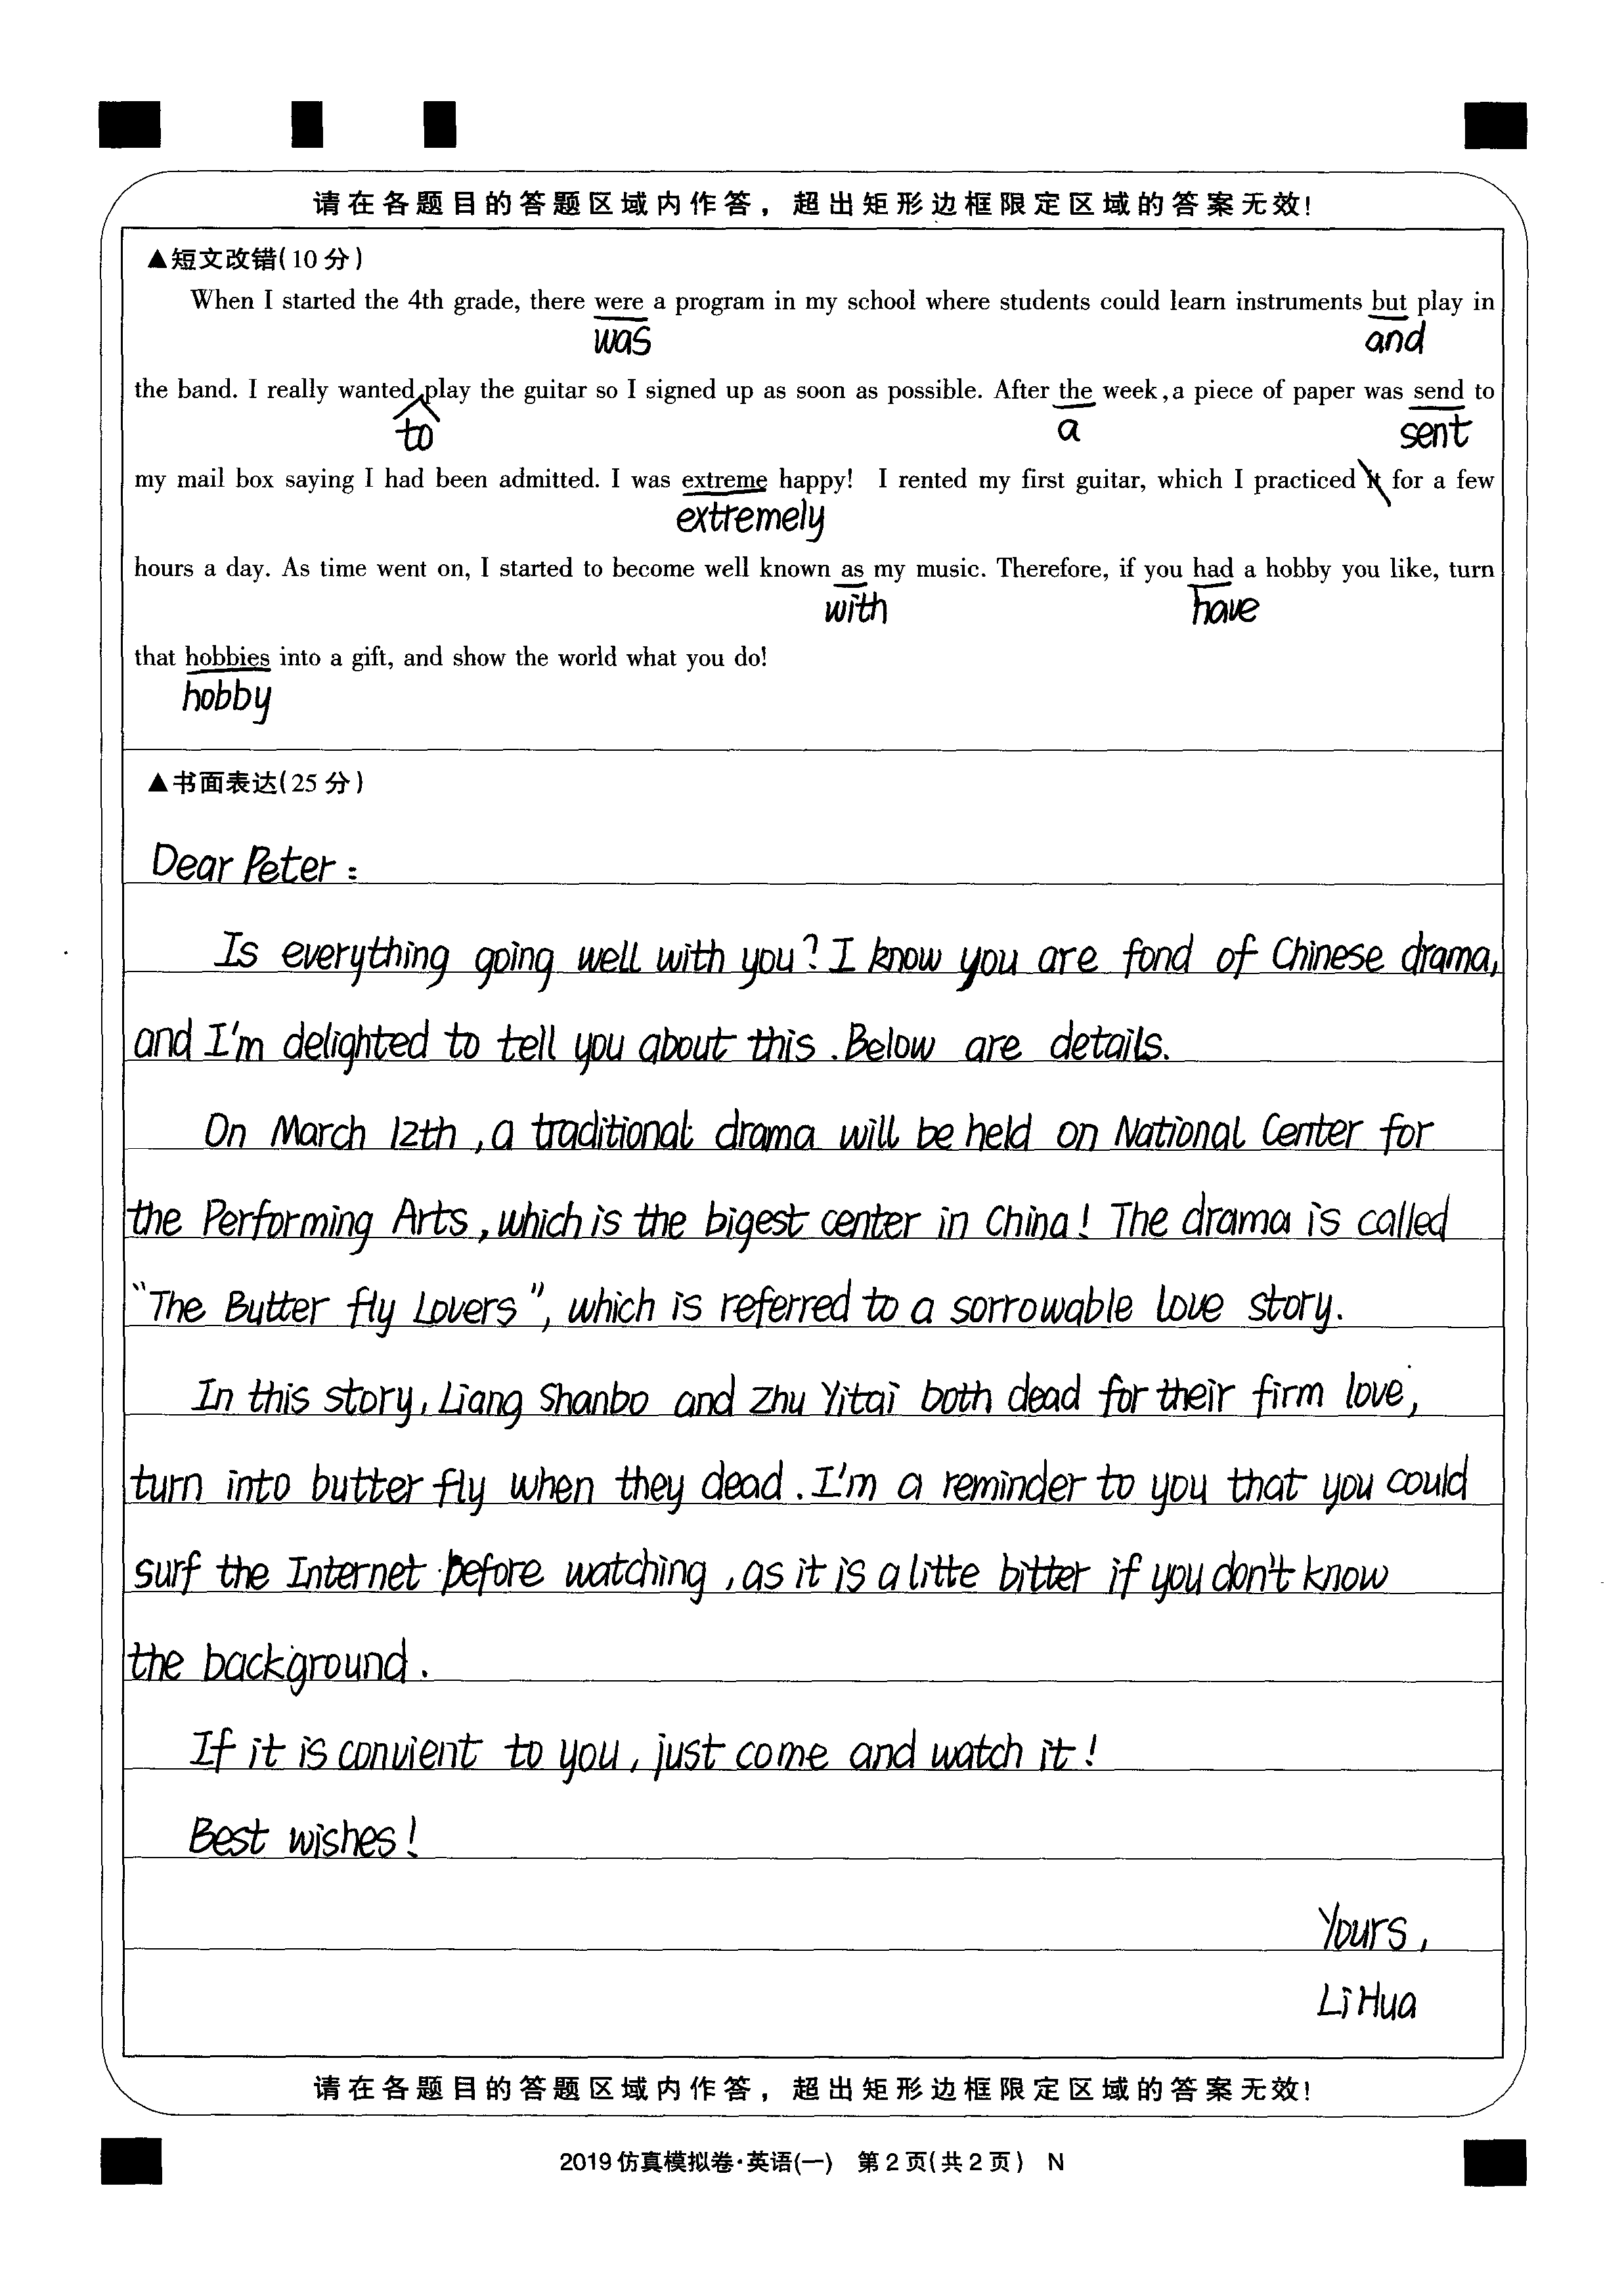 请在各题目的答题区域内作答，超出矩形边框限定区域的答案无效!
▲短文改错(10分)
When I started the 4th grade, there were a program in my school where students could learn instruments but play in
was and
the band. I really wanted play the guitar so I signed up as soon as possible. After the week, a piece of paper was send to
to a sent
my mail box saying I had been admitted. I was extreme happy! I rented my first guitar, which I practiced it for a few
extremely
hours a day. As time went on, I started to become well known as my music. Therefore, if you had a hobby you like, turn
with have
that hobbies into a gift, and show the world what you do!
hobby
▲书面表达(25分)
Dear Peter:
Is everything going well with you? I know you are fond of Chinese drama,
and I'm delighted to tell you about this. Below are details.
On March 12th, a traditional drama will be held on National Center for
the Performing Arts, which is the bigest center in China! The drama is called
"The Butter fly Lovers", which is referred to a sorrowable love story.
In this story, Liang Shanbo and Zhu Yitai both dead for their firm love,
turn into butter fly when they dead. I'm a reminder to you that you could
surf the Internet before watching, as it is a litte bitter if you don't know
the background.
If it is convient to you, just come and watch it!
Best wishes!
Yours,
Li Hua
请在各题目的答题区域内作答，超出矩形边框限定区域的答案无效!
2019仿真模拟卷·英语(一) 第2页(共2页) N